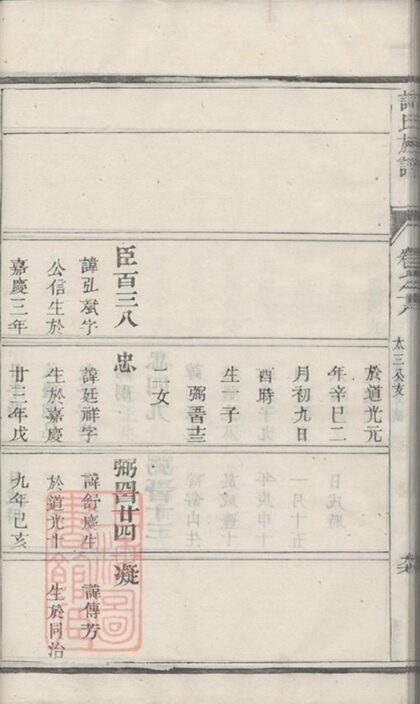 氏族譜
太三公
臣百三八
諱弘斌字
公信生於
嘉慶三年
於道光元
年辛巳二
月初九日
酉時
生一子
弼
一女
忠
諱廷祥字
生於嘉慶
廿三年戊
弼廿四
諱舒慶生
於道光十
九年己亥
凝
諱傳芳
生於同治